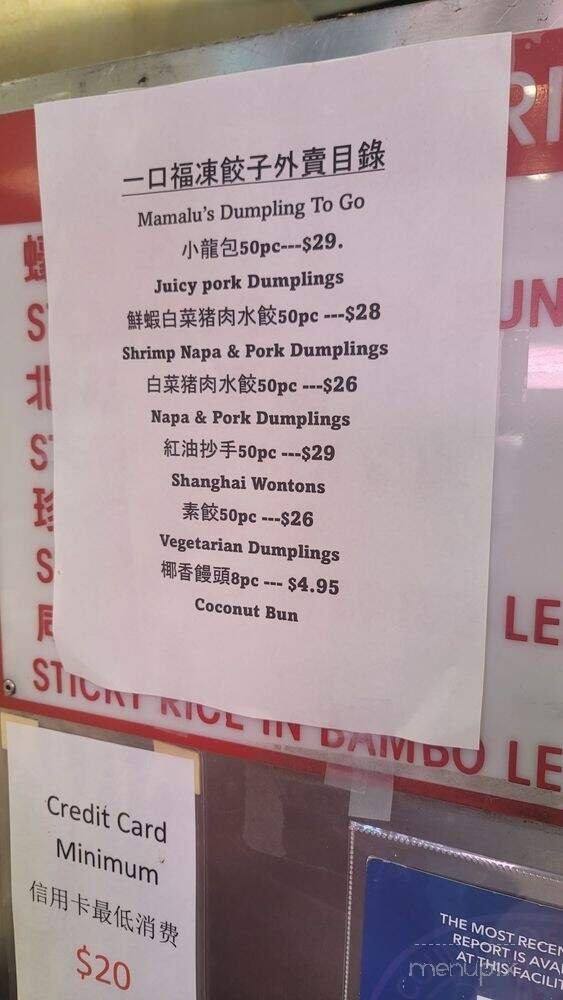 一口福凍餃子外賣目錄
Mamalu's Dumpling To Go
小龍包50pc---$29.
Juicy pork Dumplings
鮮蝦白菜猪肉水餃50pc ---$28
Shrimp Napa & Pork Dumplings
白菜猪肉水餃50pc ---$26
Napa & Pork Dumplings
紅油抄手50pc ---$29
Shanghai Wontons
素餃50pc ---$26
Vegetarian Dumplings
椰香饅頭8pc --- $4.95
Coconut Bun
RI
UN
S
北
S
珍
S
LE
STICKY RICE IN BAMBO LE
Credit Card
Minimum
信用卡最低消费
$20
THE MOST RECEN
REPORT IS AVA
AT THIS FACILIT
menupix